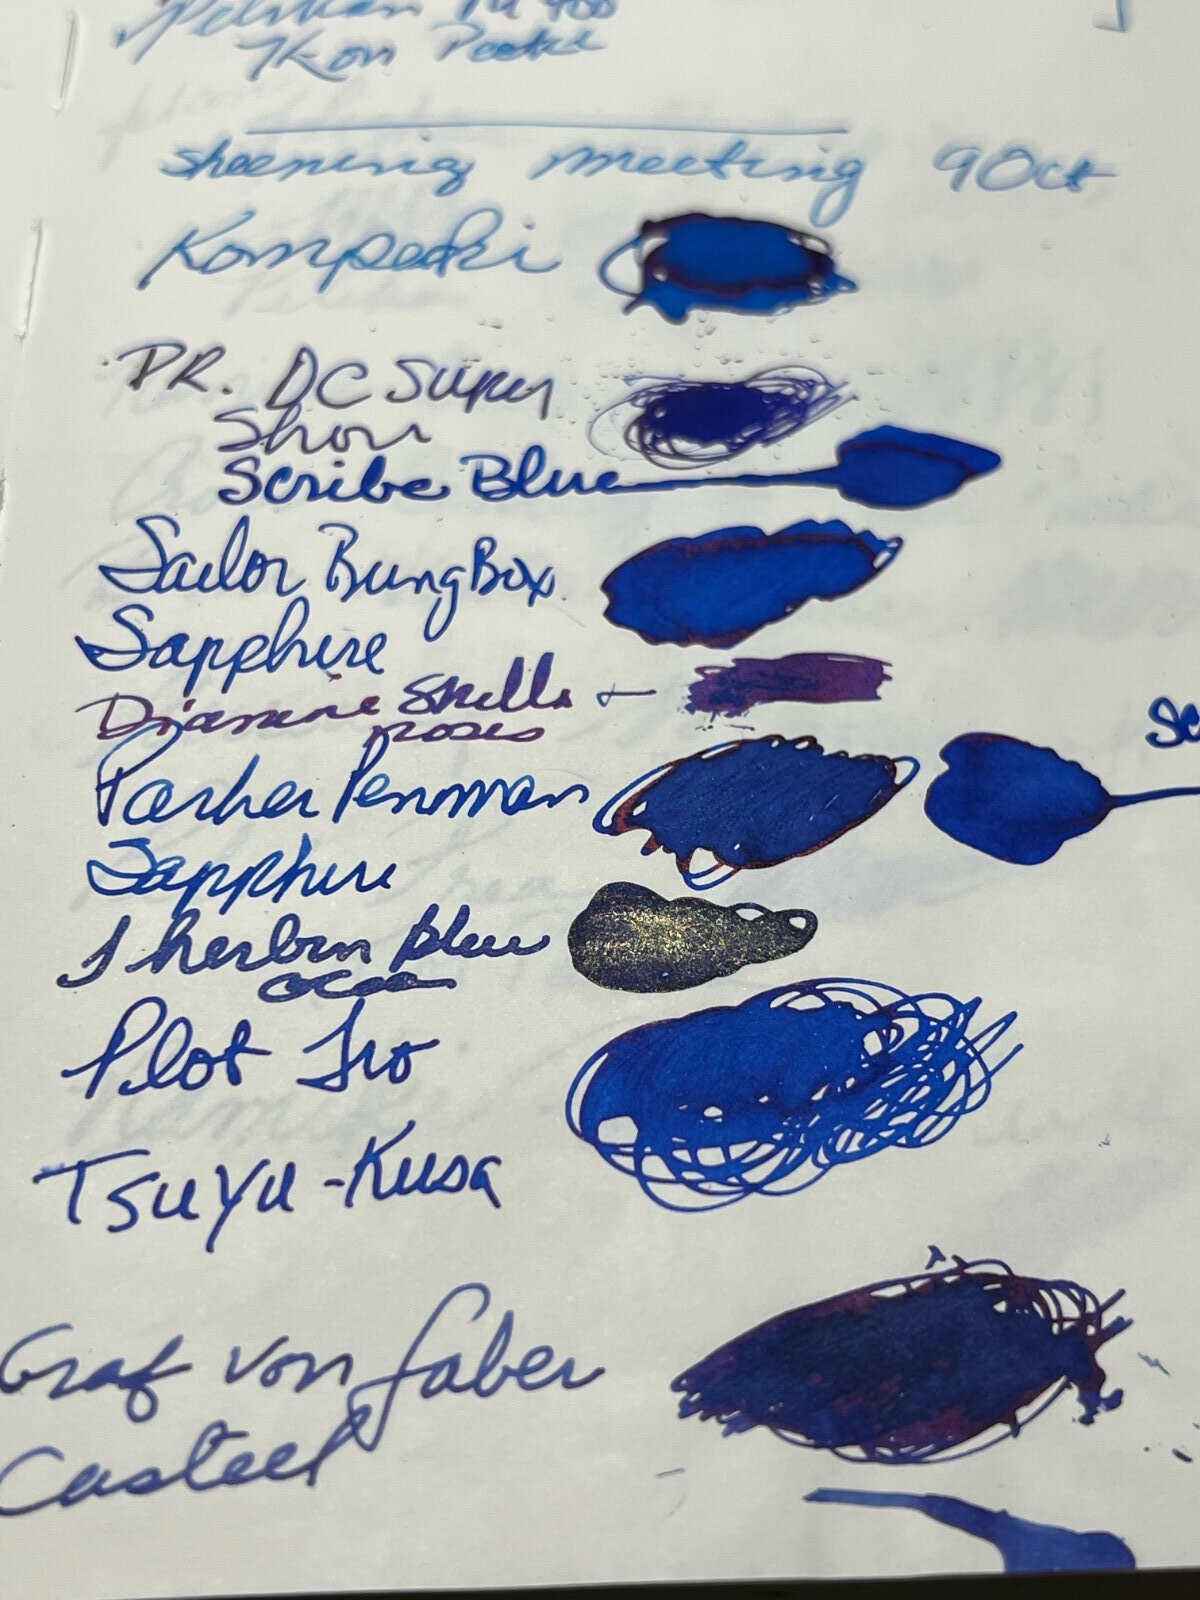 Pelikan M 400
Kon Peeki
sheening meeting 9 Oct
Kompeki
PR. DC Super
Show
Scribe Blue
Sailor BungBox
Sapphire
Diamine Skulls
roses
Sc
Parker Penman
Sapphire
J herbin Blue
ocean
Pilot Iro
TSUYU-KUSA
Graf von faber
Casteel